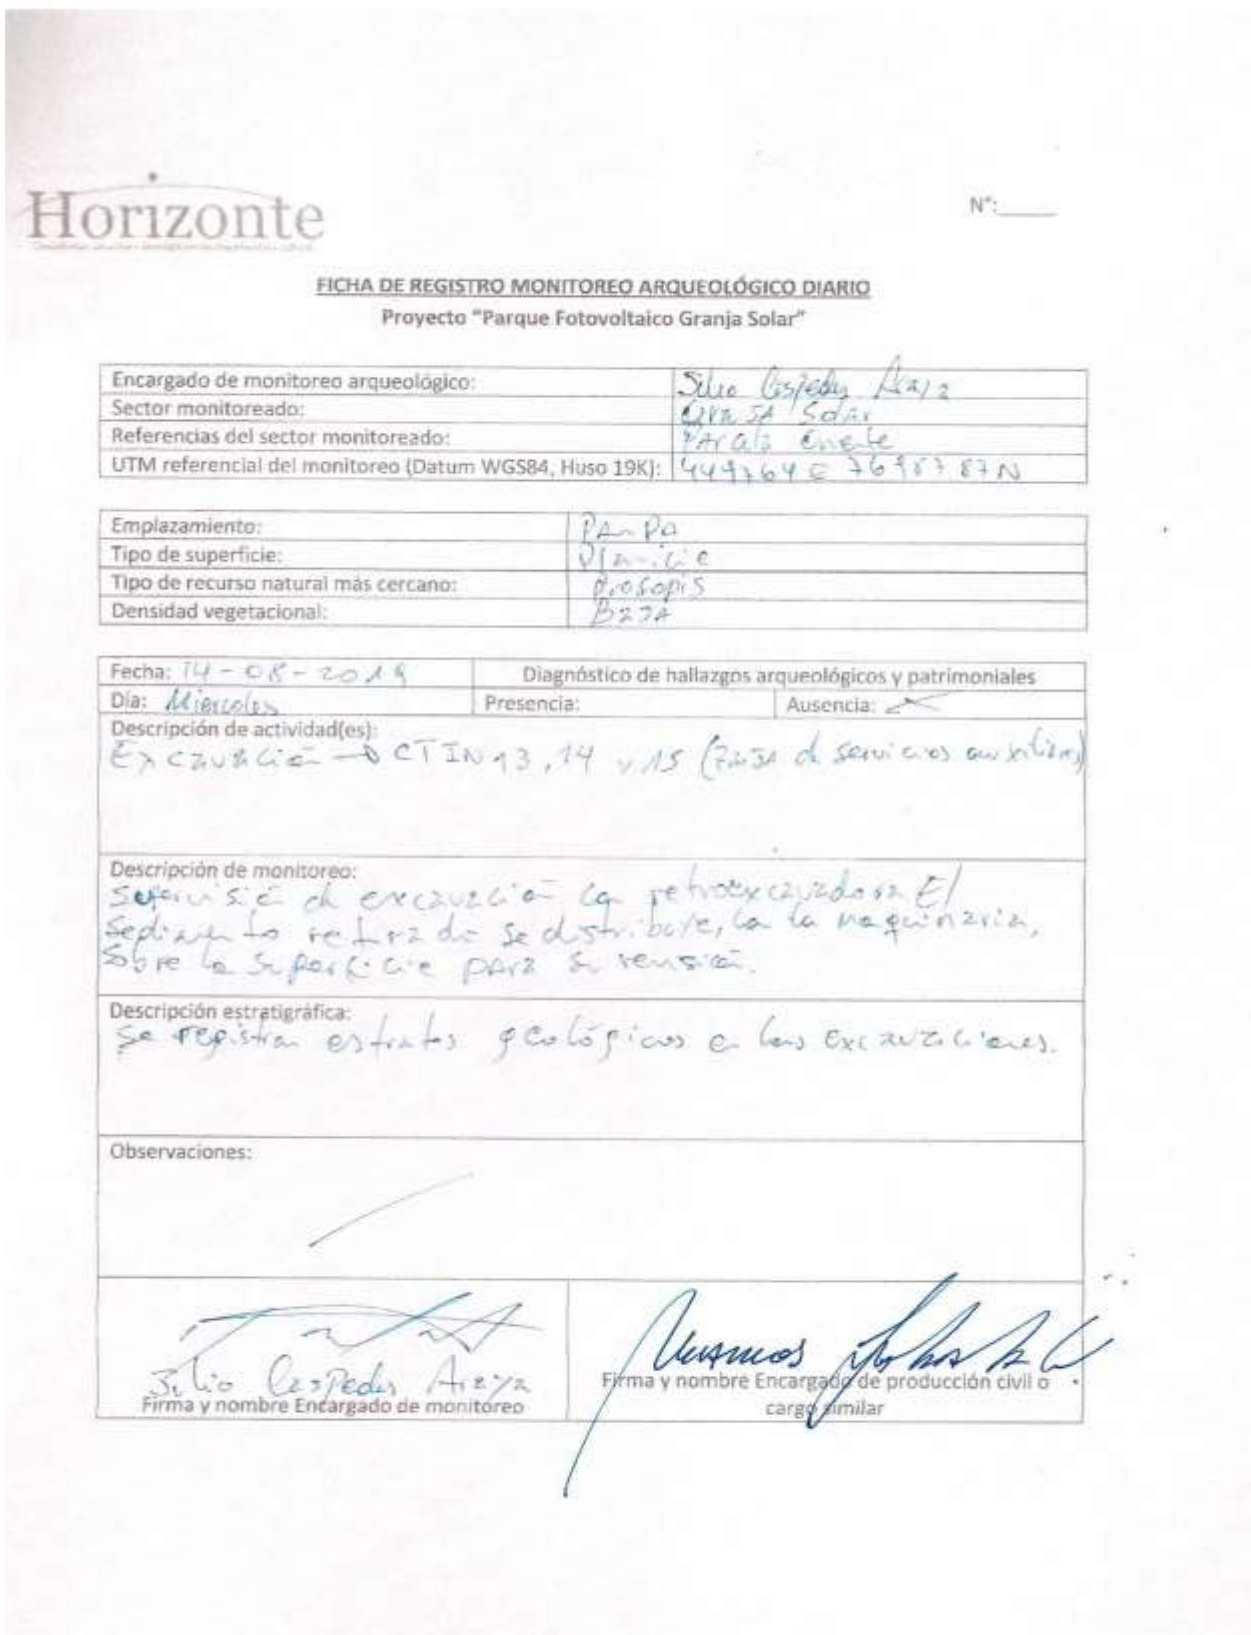 Horizonte
N°:_____
FICHA DE REGISTRO MONITOREO ARQUEOLÓGICO DIARIO
Proyecto "Parque Fotovoltaico Granja Solar"
Encargado de monitoreo arqueológico: Silvio Cespedes Araya
Sector monitoreado: Granja Solar
Referencias del sector monitoreado: Parcela Oriente
UTM referencial del monitoreo (Datum WGS84, Huso 19K): 449764 E 7698787 N
Emplazamiento: Pampa
Tipo de superficie: Planicie
Tipo de recurso natural más cercano: Prosopis
Densidad vegetacional: Baja
Fecha: 14-08-2019 Diagnóstico de hallazgos arqueológicos y patrimoniales
Día: Miercoles Presencia: Ausencia:
Descripción de actividad(es):
Excavación → CTIN 13, 14 y 15 (zanja de servicios auxiliares)
Descripción de monitoreo:
Supervisión de excavación con retroexcavadora El
Sedimento retirado se distribuye, con la maquinaria,
sobre la superficie para su revisión.
Descripción estratigráfica:
Se registran estratos geológicos en las excavaciones.
Observaciones:
Silvio Cespedes Araya
Firma y nombre Encargado de monitoreo
Firma y nombre Encargado de producción civil o
cargo similar